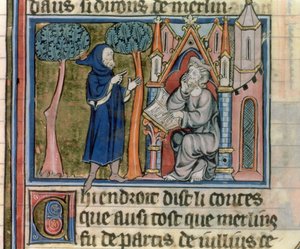 dans si dirons de merlin
Chi endroit dist li contes
que ausi tost que merlins
fu de partis de iullius ce